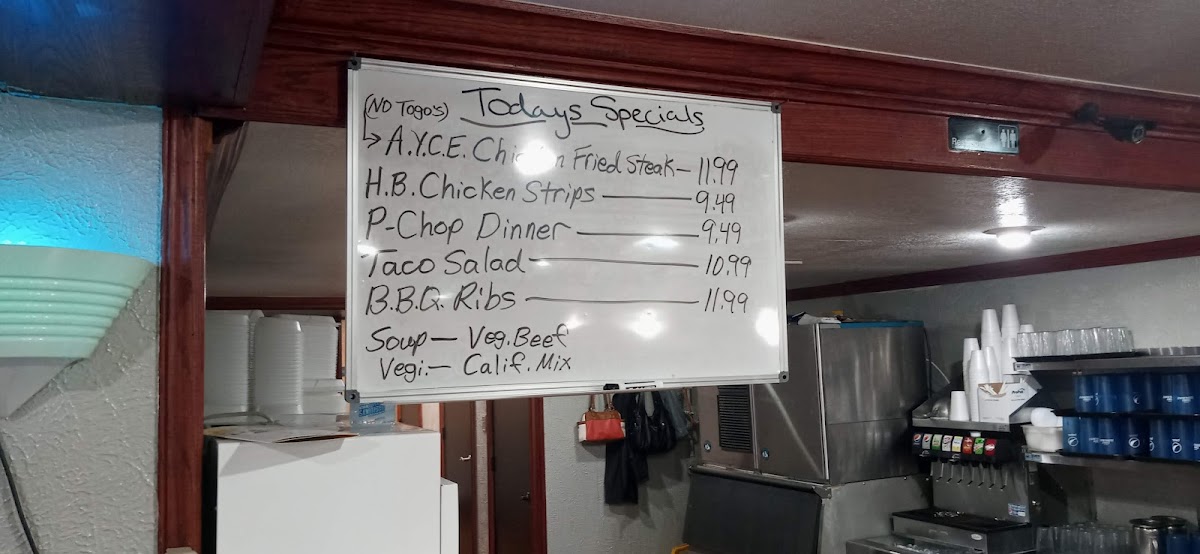 (NO Togo's) Todays Specials
A.Y.C.E. Chicken Fried Steak - 11.99
H.B. Chicken Strips - 9.49
P-Chop Dinner - 9.49
Taco Salad - 10.99
B.B.Q. Ribs - 11.99
Soup - Veg. Beef
Vegi. - Calif. Mix